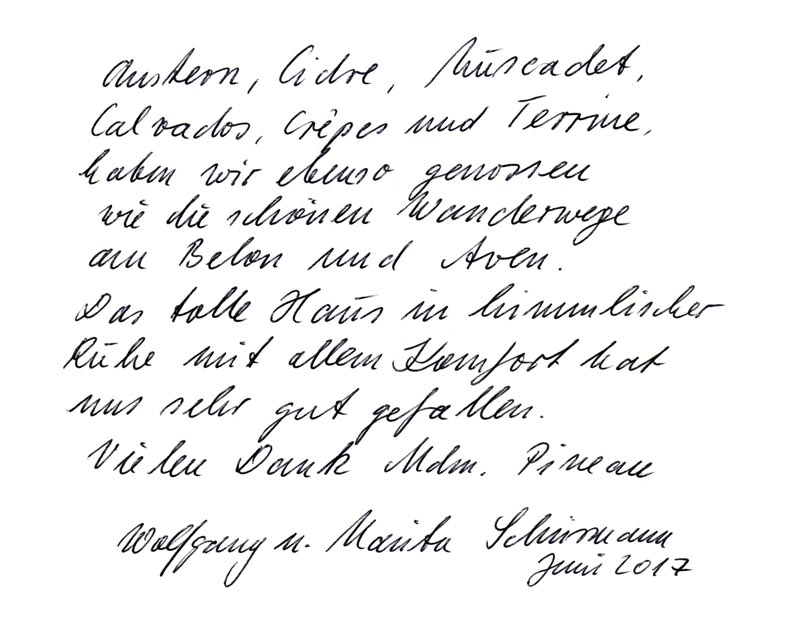 Austern, Cidre, Muscadet,
Calvados, Crêpes und Terrine,
haben wir ebenso genossen
wie die schönen Wanderwege
am Belon und Aven.
Das tolle Haus in himmlischer
Ruhe mit allem Komfort hat
uns sehr gut gefallen.
Vielen Dank Mdm. Pineau
Wolfgang u. Marita Schürmann
Juni 2017